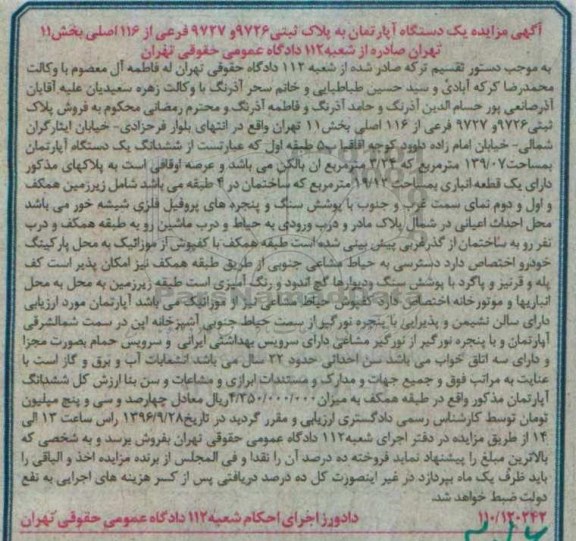 آگهی مزایده یک دستگاه آپارتمان به پلاک ثبتی۹۷۲۶و ۹۷۲۷ فرعی از ۱۱۶ اصلی بخش۱۱
تهران صادره از شعبه۱۱۲ دادگاه عمومی حقوقی تهران
به موجب دستور تقسیم ترکه صادر شده از شعبه ۱۱۲ دادگاه حقوقی تهران له فاطمه آل معصوم با وکالت
محمدرضا کرکه آبادی و سید حسین طباطبایی و خانم سحر آذرنگ با وکالت زهره سعیدیان علیه آقایان
آذرصانعی پور حسام الدین آذرنگ و حامد آذرنگ و فاطمه آذرنگ و محترم رمضانی محکوم به فروش پلاک
ثبتی۹۷۲۶و ۹۷۲۷ فرعی از ۱۱۶ اصلی بخش۱۱ تهران واقع در انتهای بلوار فرحزادی- خیابان ایثارگران
شمالی- خیابان امام زاده داوود کوچه اقاقیا پ۵ طبقه اول که عبارتست از ششدانگ یک دستگاه آپارتمان
بمساحت۱۳۹/۰۷ مترمربع که ۳/۲۴ مترمربع ان بالکن می باشد و عرصه اوقافی است به پلاکهای مذکور
دارای یک قطعه انباری بمساحت۱۹/۱۳ مترمربع که ساختمان در ۴ طبقه می باشد شامل زیرزمین همکف
و اول و دوم نمای سمت غرب و جنوب با پوشش سنگ و پنجره های پروفیل فلزی شیشه خور می باشد
محل احداث اعیانی در شمال پلاک مادر و درب ورودی به حیاط و درب ماشین رو به طبقه همکف و درب
نفر رو به ساختمان از گذرغربی پیش بینی شده است طبقه همکف با کفپوش از موزائیک به محل پارکینگ
خودرو اختصاص دارد دسترسی به حیاط مشاعی جنوبی از طریق طبقه همکف نیز امکان پذیر است کف
پله و قرنیز و پاگرد با پوشش سنگ ودیوارها گچ اندود و رنگ آمیزی است طبقه زیرزمین به محل به محل
انباریها و موتورخانه اختصاص دارد کفپوش حیاط مشاعی نیز از موزائیک می باشد آپارتمان مورد ارزیابی
دارای سالن نشیمن و پذیرایی با پنجره نورگیر از سمت حیاط جنوبی آشپزخانه اپن در سمت شمالشرقی
آپارتمان و با پنجره نورگیر از نورگیر مشاعی دارای سرویس بهداشتی ایرانی و سرویس حمام بصورت مجزا
و دارای سه اتاق خواب می باشد سن احداثی حدود ۲۲ سال می باشد انشعابات آب و برق و گاز است با
عنایت به مراتب فوق و جمیع جهات و مدارک و مستندات ابرازی و مشاعات و سن بنا ارزش کل ششدانگ
آپارتمان مذکور واقع در طبقه همکف به میزان۴/۳۵۰/۰۰۰/۰۰۰ریال معادل چهارصد و سی و پنج میلیون
تومان توسط کارشناس رسمی دادگستری ارزیابی و مقرر گردید در تاریخ۱۳۹۶/۹/۲۸ راس ساعت ۱۳ الی
۱۴ از طریق مزایده در دفتر اجرای شعبه۱۱۲ دادگاه عمومی حقوقی تهران بفروش برسد و به شخصی که
بالاترین مبلغ را پیشنهاد نماید فروخته ده درصد آن را نقدا و فی المجلس از برنده مزایده اخذ و الباقی را
باید ظرف یک ماه بپردازد در غیر اینصورت کل ده درصد دریافتی پس از کسر هزینه های اجرایی به نفع
دولت ضبط خواهد شد.
۱۱۰/۱۲۰۲۴۲ دادورز اجرای احکام شعبه۱۱۲ دادگاه عمومی حقوقی تهران